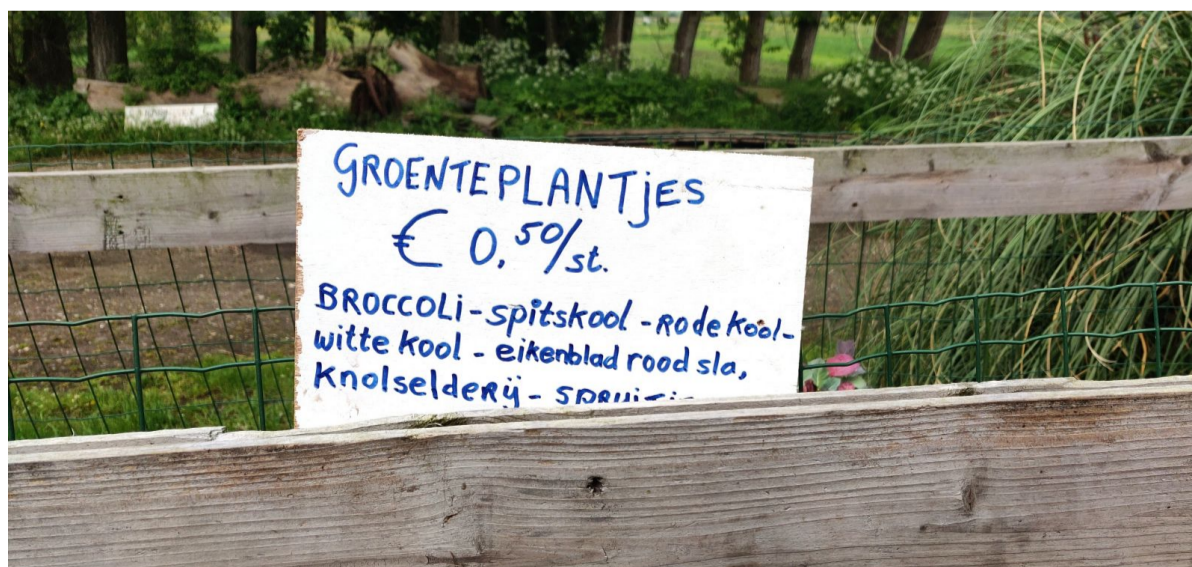 GROENTEPLANTjES
€ 0,50/st.
BROCCOLi - spitskool - Rode kool -
witte kool - eikenblad rood sla,
Knolselderij -